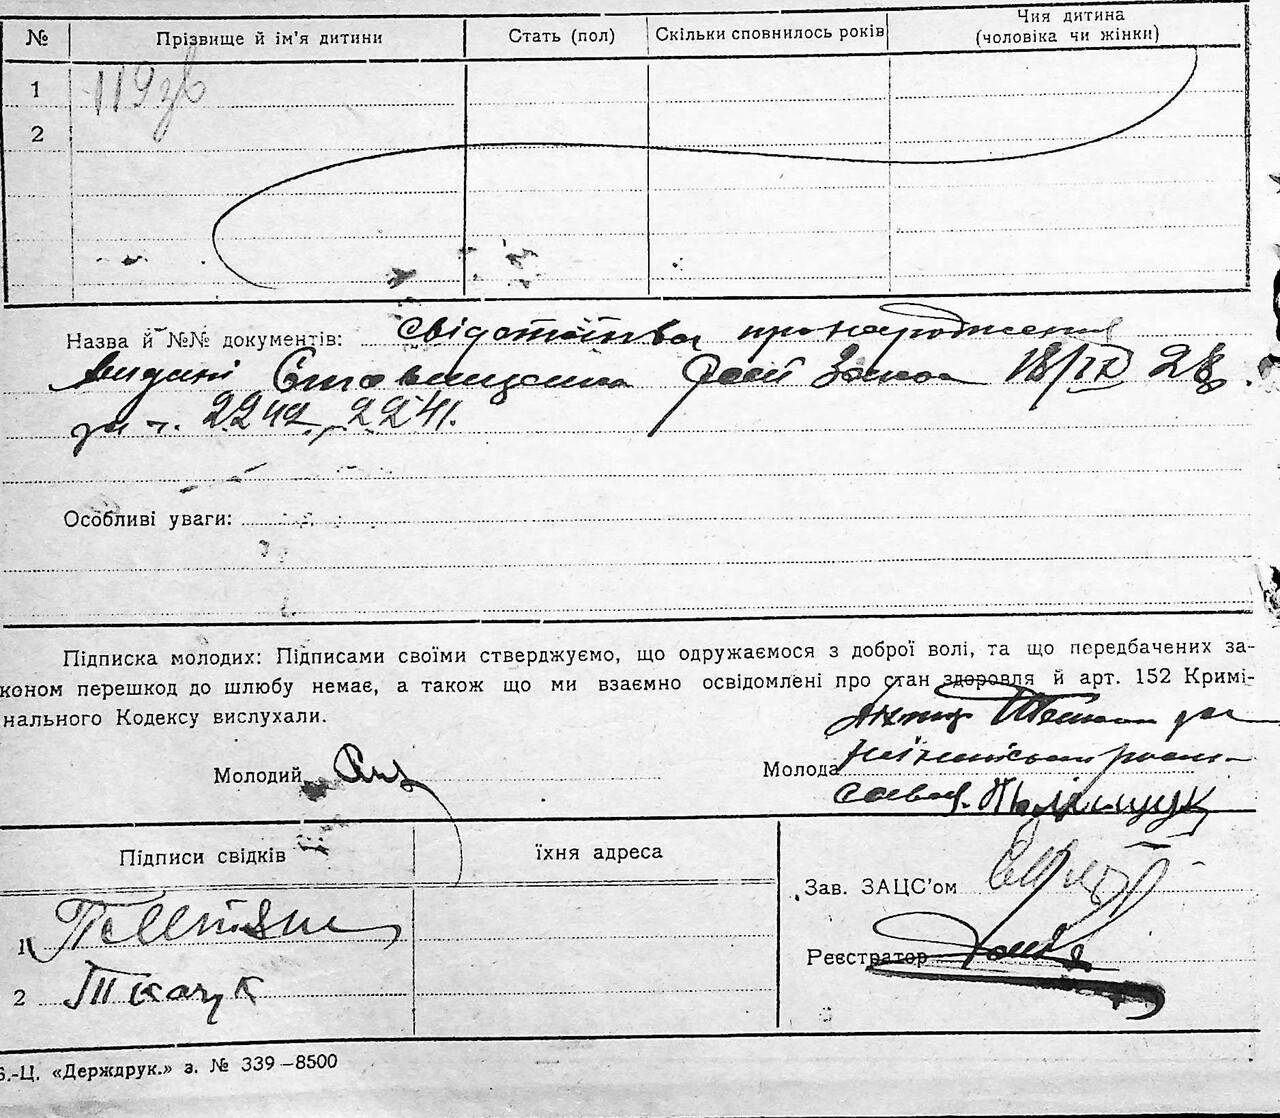 № Прізвище й ім'я дитини Стать (пол) Скільки сповнилось років Чия дитина (чоловіка чи жінки)
1 119зв
2
Назва й №№ документів: свідотства про народження
видані рай Загса 18/IX 28
за ч. 2242, 2241.
Особливі уваги:
Підписка молодих: Підписами своїми стверджуємо, що одружаємося з доброї волі, та що передбачених за-
коном перешкод до шлюбу немає, а також що ми взаємно освідомлені про стан здоровля й арт. 152 Кримі-
нального Кодексу вислухали.
Молодий
Молода
Поліщук
Підписи свідків їхня адреса
Зав. ЗАЦС'ом
1
Реєстратор
2 Ткачук
Б.-Ц. «Держдрук.» з. № 339—8500